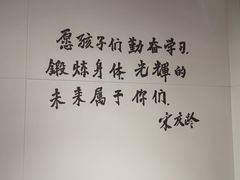 愿孩子们勤奋学习.
鍛炼身体.光輝的
未来属于你们.
宋庆龄